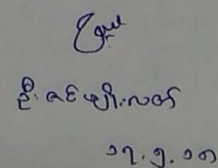 ဦးဇင်မျိုးလတ်
၁၇.၅.၁၈